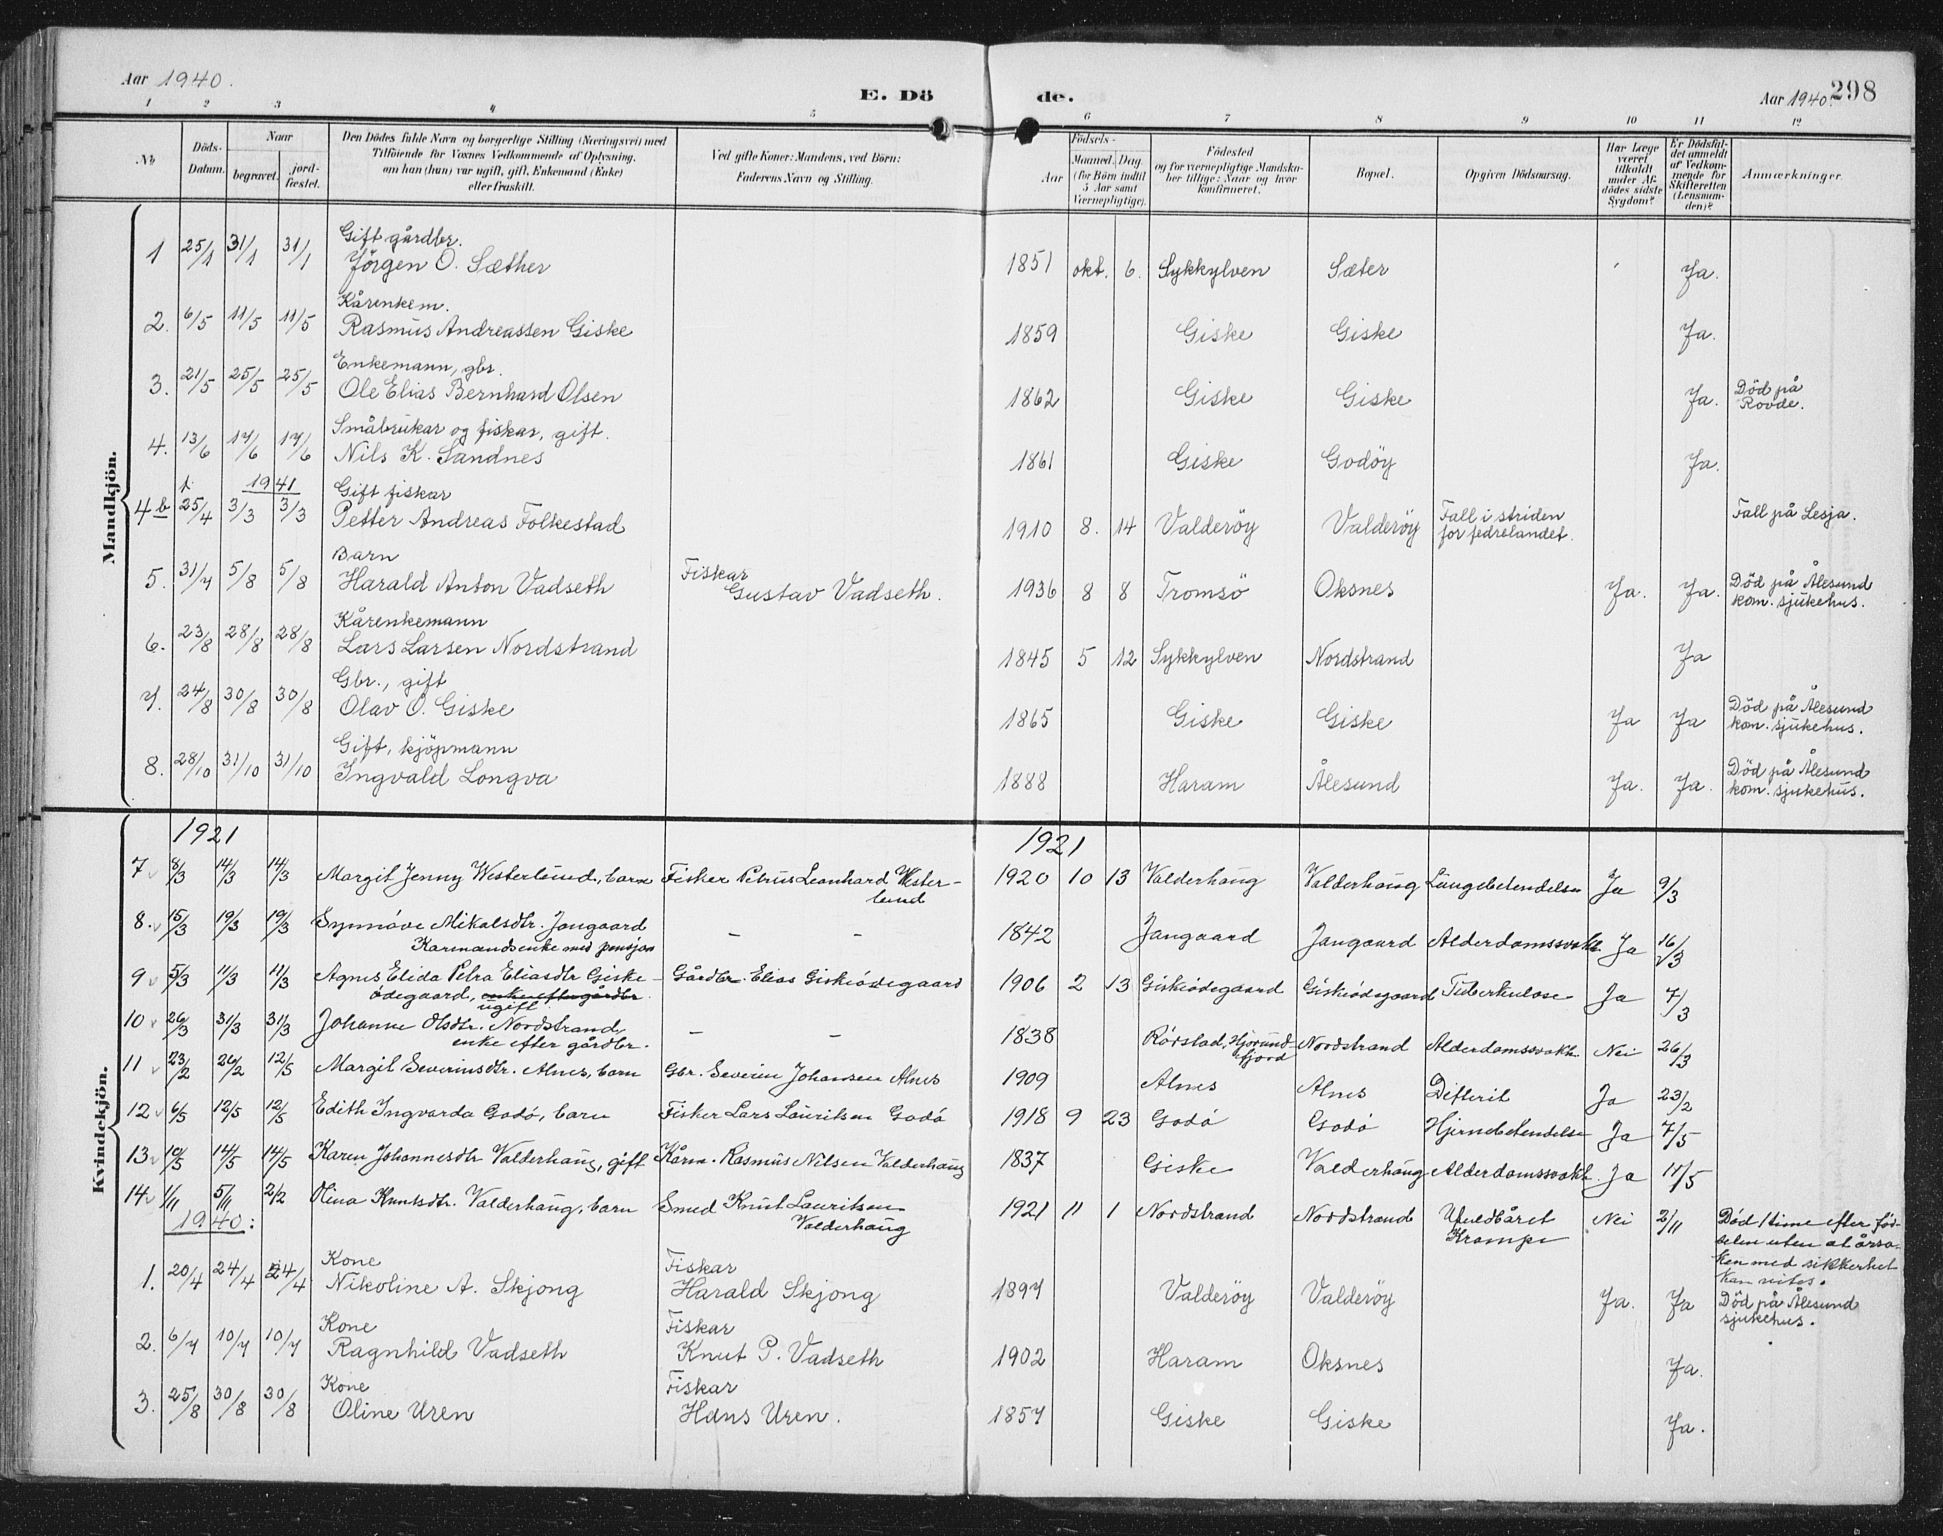 Aar 1940.
E. Dö
de.
Aar 1940.
298
1 2 3 4 5 6 7 8 9 10 11 12
No
Döds-Datum.
Naar
begravet.
jord-fæstet.
Den Dödes fulde Navn og borgerlige Stilling (Næringsvei) med
Tilföiende for Voxnes Vedkommende af Oplysning,
om han (hun) var ugift, gift, Enkemand (Enke)
eller fraskilt.
Ved gifte Koner: Mandens, ved Börn:
Faderens Navn og Stilling.
Födsels-
Aar
Maaned. Dag.
(for Börn indtil
5 Aar samt
Værnepligtige).
Födested
og for værnepligtige Mandska-
ber tillige: Naar og hvor
konfirmeret.
Bopæl.
Opgiven Dödsaarsag.
Har Læge
været
tilkaldt
under Af-
dödes sidste
Sygdom?
Er Dödsfal-
det anmeldt
af Vedkom-
mende for
Skifteretten
(Lensman-
den)?
Anmærkninger.
Mandkjön.
Gift gårdbr.
1 25/1 31/1 31/1 Jörgen O. Sæther 1851 okt. 6. Sykkylven Sæter Ja.
Kårenkem.
2. 6/5 11/5 11/5 Rasmus Andreassen Giske 1859 Giske Giske Ja.
Enkemann, gbr.
3. 21/5 25/5 25/5 Ole Elias Bernhard Olsen 1862 Giske Giske Ja. Död på
Rovde.
Småbrukar og fiskar, gift.
4. 13/6 17/6 17/6 Nils K. Sandnes 1861 Giske Godöy Ja.
1941
Gift fiskar
4b 25/4 3/3 3/3 Petter Andreas Folkestad 1910 8. 14 Valderöy Valderöy Fall i striden
for fedrelandet.
Fall på Lesja.
Barn
5. 31/7 5/8 5/8 Harald Anton Vadseth Fiskar
Gustav Vadseth. 1936 8 8 Tromsö Oksnes Ja. Ja. Död på Ålesund
kom. sjukehus.
Kårenkemann
6. 23/8 28/8 28/8 Lars Larsen Nordstrand 1845 5 12 Sykkylven Nordstrand Ja
Gbr., gift
7. 24/8 30/8 30/8 Olav O. Giske 1865 Giske Giske Ja Ja Död på Ålesund
kom. sjukehus.
Gift, kjöpmann
8. 28/10 31/10 31/10 Ingvald Longva 1888 Haram Ålesund Ja. Ja. Död på Ålesund
kom. sjukehus.
Kvindekjön.
1921 1921
7 8/3 14/3 14/3 Margit Jenny Westerlund, barn Fisker Petrus Leonhard Wester-
lund 1920 10 13 Valderhaug Valderhaug Lungebetendelse Ja 9/3
8. 15/3 19/3 19/3 Synnøve Mikalsdtr. Jangaard
Kårmandsenke med pensjon - - 1842 Jangaard Jangaard Alderdomssvakh. Ja 16/3
9 5/3 11/3 11/3 Agnes Elida Petra Eliasdtr Giske-
ødegaard, enke efter gårdbr.
ugift
Gårdbr. Elias Giskeødegaard 1906 2 13 Giskeødegaard Giskeødegaard Tuberkulose Ja 7/3
10 26/3 31/3 31/3 Johanne Olsdtr. Nordstrand,
enke efter gårdbr. - - 1838 Rørstad, Hjørund-
fjord Nordstrand Alderdomssvakh. Nei 26/3
11 23/2 26/2 12/5 Margit Severinsdtr. Alnes, barn Gbr. Severin Johansen Alnes 1909 Alnes Alnes Difterit Ja 23/2
12 6/5 12/5 12/5 Edith Ingvarda Godø, barn Fisker Lars Lauritsen Godø 1918 9 23 Godø Godø Hjernebetendelse Ja 7/5
13 10/5 14/5 14/5 Karen Johannesdtr Valderhaug, gift Kårm. Rasmus Nilsen Valderhaug 1837 Giske Valderhaug Alderdomssvakh. Ja 11/5
14 1/11 5/11 2/2 Olina Knutsdtr. Valderhaug, barn Smed Knut Lauritsen
Valderhaug 1921 11 1 Nordstrand Nordstrand Uuldbåret
Krampe Nei 2/11 Død 1 time efter fød-
selen uten at årsa-
ken med sikkerhet
kan vites.
1940:
Kone Fiskar
1. 20/4 24/4 24/4 Nikoline A. Skjong Harald Skjong 1897 Valderöy Valderöy Ja. Ja Död på Ålesund
sjukehus.
Kone Fiskar
2. 6/7 10/7 10/7 Ragnhild Vadseth Knut P. Vadseth 1902 Haram Oksnes Ja.
Kone Fiskar
3. 25/8 30/8 30/8 Oline Uren Hans Uren. 1857 Giske Giske Ja.